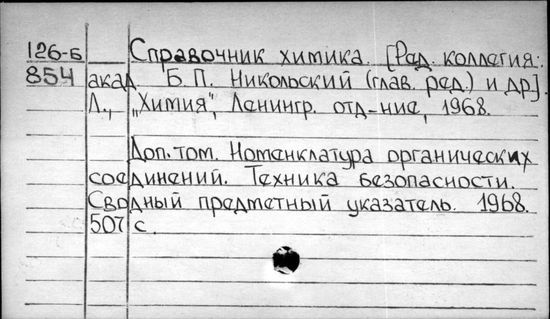 126-Б Справочник химика. [Ред. коллегия:
854 акад. Б.П. Никольский (глав. ред.) и др].
Л., „Химия", Ленингр. отд-ние, 1968.
Доп. том. Номенклатура органических
соединений. Техника безопасности.
Сводный предметный указатель. 1968.
507 с.